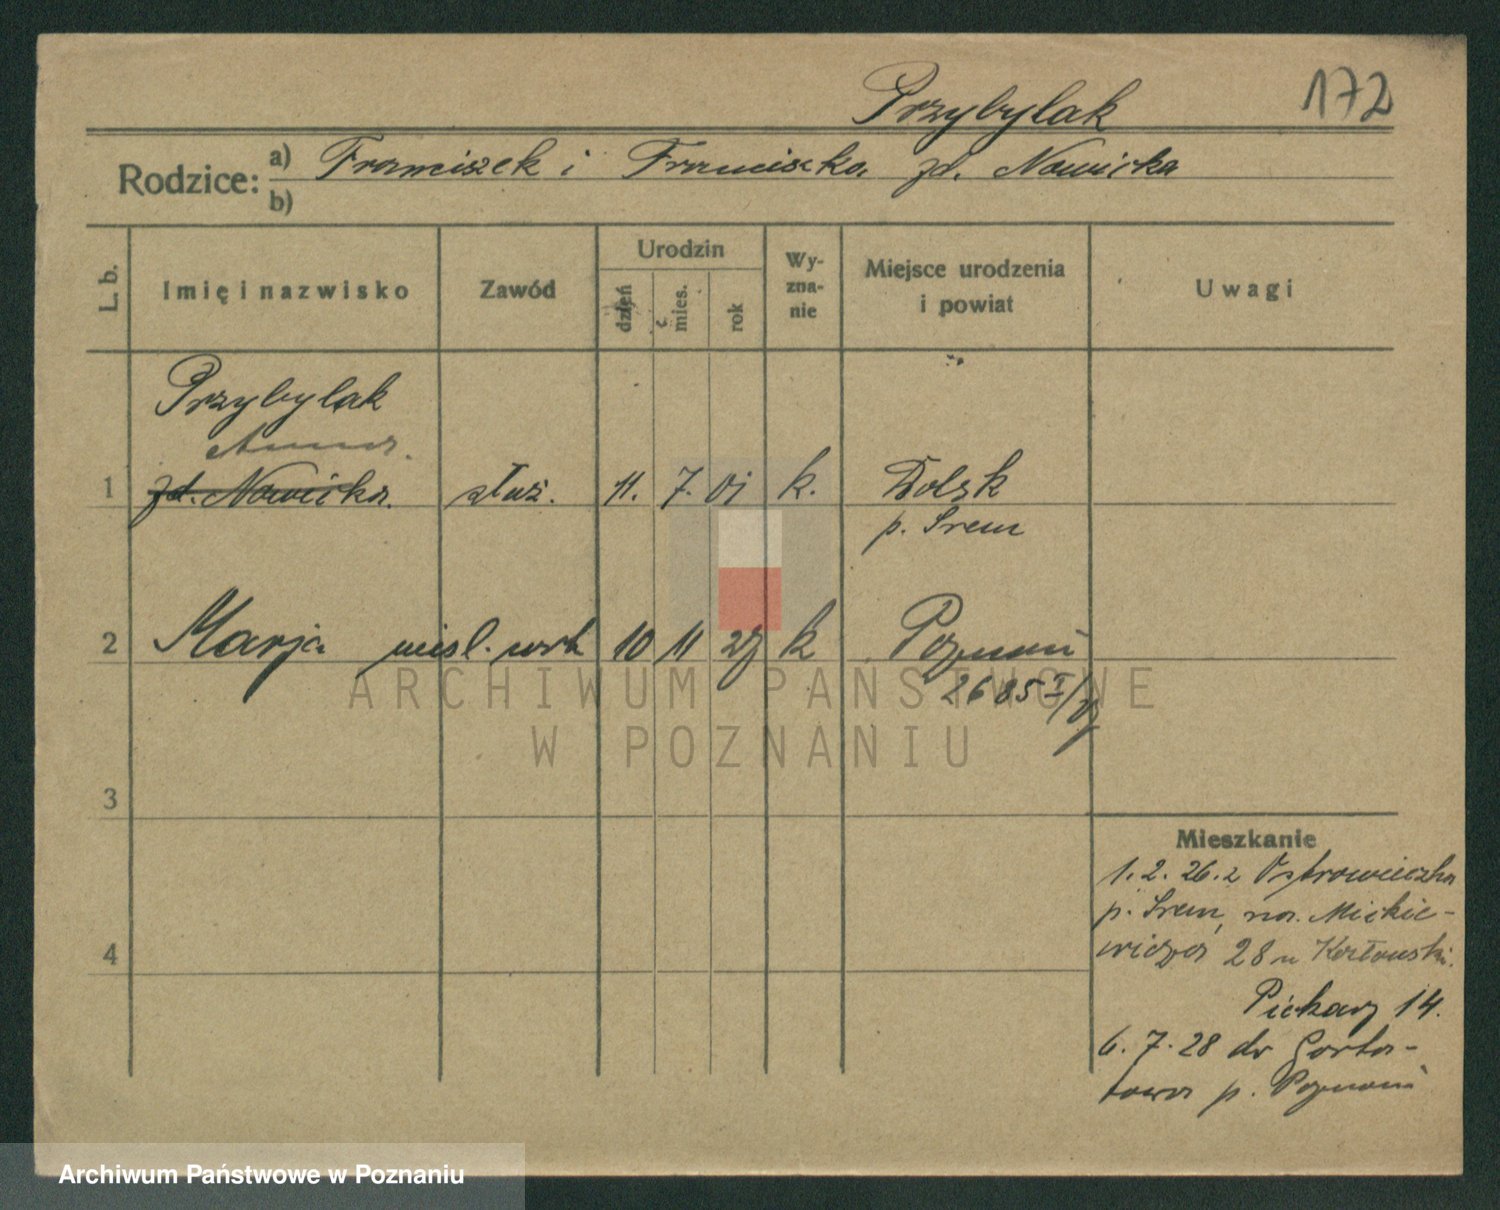 172
Przybylak
Rodzice: a) Franciszek i Franciszka zd. Nowicka
b)
L. b.
Imię i nazwisko
Zawód
Urodzin
dzień
mies.
rok
Wy-
zna-
nie
Miejsce urodzenia
i powiat
Uwagi
Przybylak
Anna
1 zd. Nowicka służ. 11. 7. 01 k. Dolsk
p. Śrem
2 Marja 10 11 27 k Poznań
2685 I/27
3
4
Mieszkanie
1.2.26. z Ostrowieczka
p. Śrem, na Mickie-
wicza 28 u Kozłowski.
Piekary 14.
6.7.28 do Gorta-
towa p. Poznań
ARCHIWUM PAŃSTWOWE
W POZNANIU
Archiwum Państwowe w Poznaniu